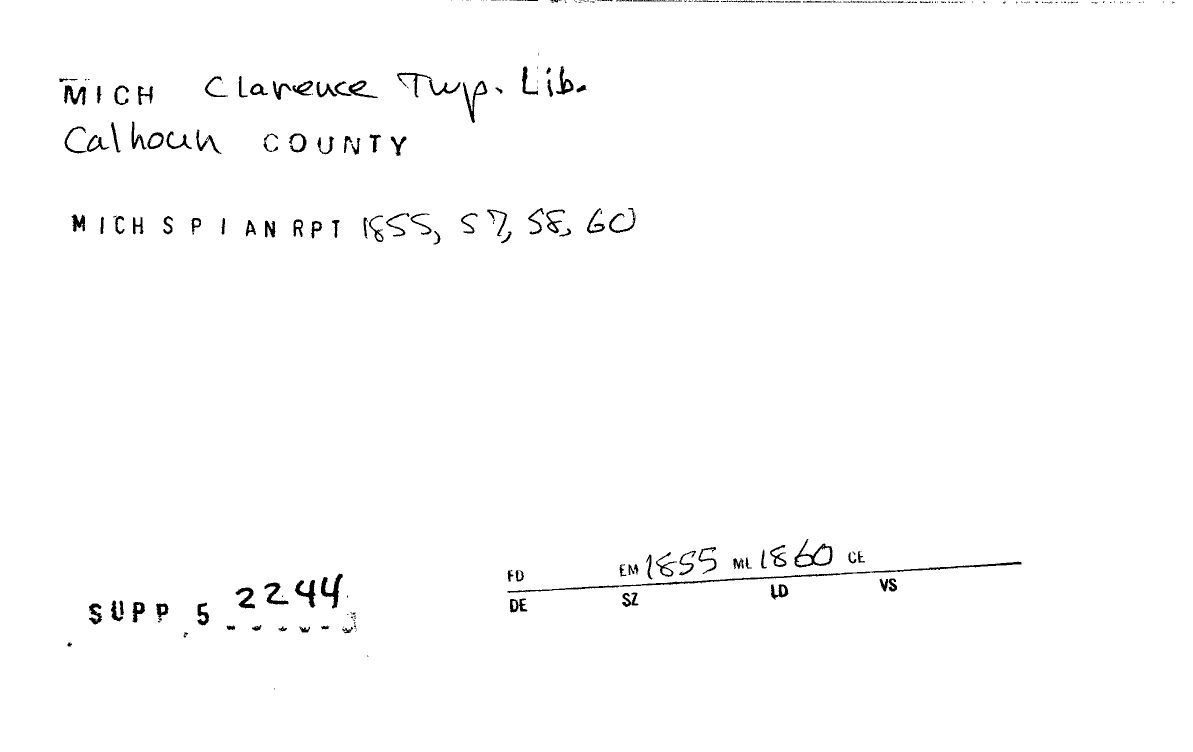 MICH Clarence Twp. Lib.
Calhoun COUNTY
MICH S P I AN RPT 1855, 57, 58, 60
SUPP 5 2244
FD EM 1855 ML 1860 CE
DE SZ LD VS